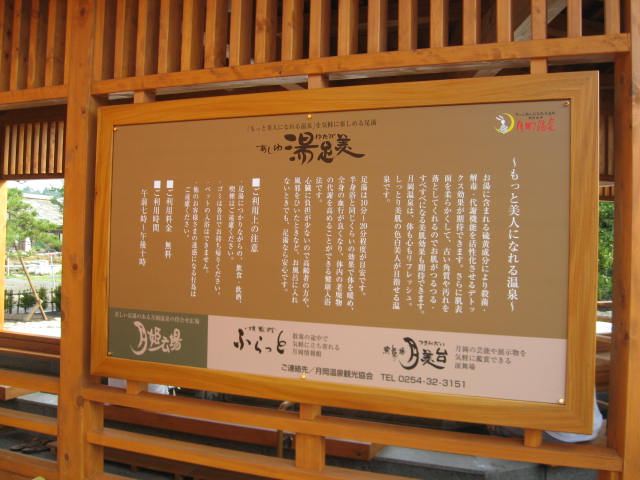 「もっと美人になれる温泉」を気軽に楽しめる足湯
あしゆ 湯足美
わたび
もっと美人になれる温泉
月岡温泉
～もっと美人になれる温泉～
お湯に含まれる硫黄成分により殺菌・
解毒・代謝機能を活性化させるデトッ
クス効果が期待できます。さらに肌表
面を柔らかくして、古い角質や汚れを
落としてくれるのでお肌がつるつる・
すべすべになる美肌効果も期待できます。
月岡温泉は、体も心もリフレッシュ。
しっとり美肌の色白美人が目指せる温
泉です。
足湯は10分～20分程度が目安です。
半身浴と同じくらいの効果で体を暖め、
全身の血行が良くなり、体内の老廃物
の代謝を高めることができる健康入浴
法です。
心臓に負担が少ないので高齢者の方や、
風邪をひいたときなど、お風呂に入れ
ないときでも、足湯なら安心です。
■ご利用上の注意
・足湯につかりながらの、飲食・飲酒、
喫煙はご遠慮ください。
・ゴミは各自でお持ち帰りください。
・ペットの入浴はできません。
・他のお客様さまの迷惑になる行為は
ご遠慮ください。
■ご利用料金 無料
■ご利用時間
午前七時～午後十時
美しい庭湯のある月岡温泉の待合せ広場
月姫広場
ぷらっと
散策の途中で
気軽に立ち寄れる
月岡情報館
つきみだい
月美台
月岡の芸能や展示物を
気軽に鑑賞できる
演舞場
ご連絡先／月岡温泉観光協会 TEL 0254-32-3151